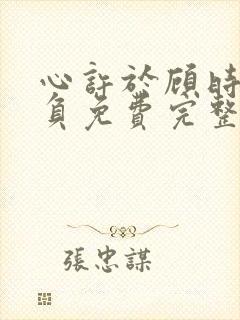 心許於顧時
負免費完整
張忠謀